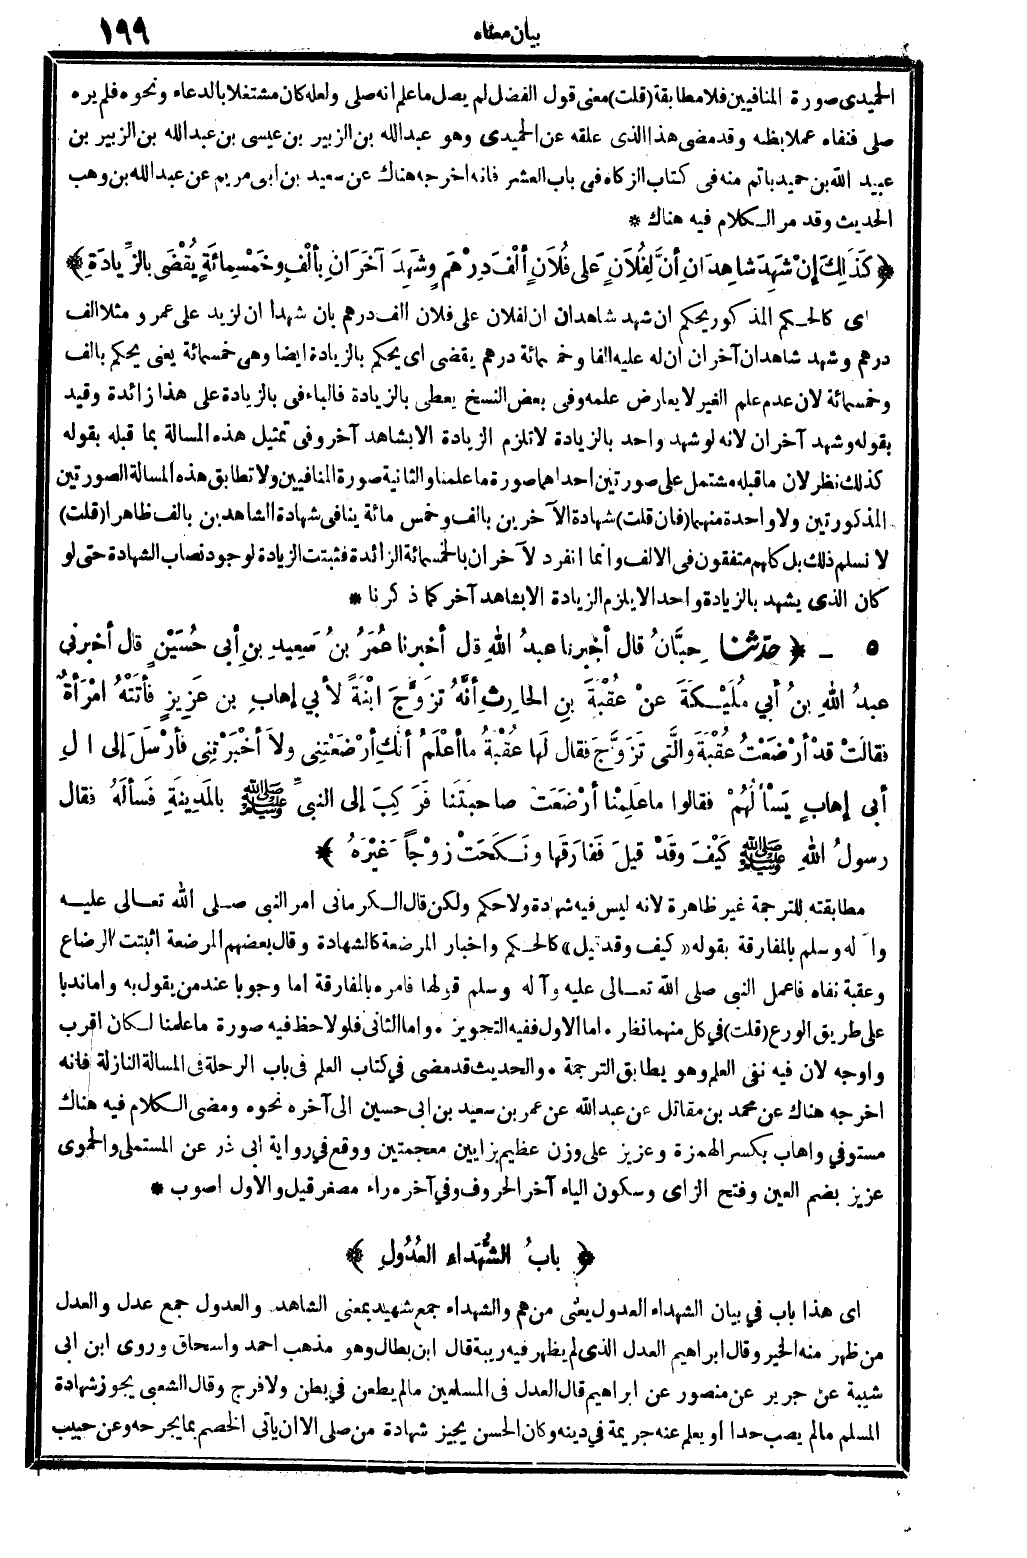 بيان معناه
١٩٩
الحميدي صورة المنافيين فلا مطابقة (قلت) معنى قول الفضل لم يصل ما علم انه صلى ولعله كان مشتغلا بالدعاء ونحوه فلم يره
صلى فنفاه عملا بظنه وقد مضى هذا الذى علقه عن الحميدى وهو عبدالله بن الزبير بن عيسى بن عبدالله بن الزبير بن
عبيد الله بن حميد باتم منه فى كتاب الزكاه فى باب العشر فانه اخرجه هناك عن سعيد بن ابى مريم عن عبدالله بن وهب
الحديث وقد مر الكلام فيه هناك *
﴿ كَذَلِكَ إنْ شَهِدَ شاهِدَانِ أنَّ لِفُلَانٍ عَلى فُلَانٍ ألْفَ دِرْهَمٍ وشَهِدَ آخَرَانِ بِألْفٍ وخَمْسِمِائَةٍ يُقْضَى بالزِّيادَةِ ﴾
اى كالحكم المذكور يحكم ان شهد شاهدان ان لفلان على فلان الف درهم بان شهدا ان لزيد على عمرو مثلا الف
درهم وشهد شاهدان آخران ان له عليه الفا وخمسمائة درهم يقضى اى يحكم بالزيادة ايضا وهى خمسمائة يعنى يحكم بالف
وخمسمائة لان عدم علم الغير لا يعارض علمه وفى بعض النسخ يعطى بالزيادة فالباء فى بالزيادة على هذا زائدة وقيد
بقوله وشهد آخران لانه لو شهد واحد بالزيادة لا تلزم الزيادة الا بشاهد آخر وفى تمثيل هذه المسالة بما قبله بقوله
كذلك نظر لان ما قبله مشتمل على صورتين احداهما صورة ما علمنا والثانية صورة المنافيين ولا تطابق هذه المسالة الصورتين
المذكورتين ولا واحدة منهما (فان قلت) شهادة الآخرين بالف وخمس مائة ينافى شهادة الشاهدين بالف ظاهرا (قلت)
لا نسلم ذلك بل كلهم متفقون فى الالف وانما انفرد لآخران بالخمسمائة الزائدة فثبتت الزيادة لوجود نصاب الشهادة حتى لو
كان الذى يشهد بالزيادة واحد الا يلزم الزيادة الا بشاهد آخر كما ذكرنا *
٥ - ﴿ حدّثنا حِبَّانُ قال أخبرنا عبدُ اللهِ قل أخبرنا عُمَرُ بنُ سَعِيدِ بنِ أبى حُسَيْنٍ قال أخبرنى
عبدُ اللهِ بنُ أبي مُلَيْكَةَ عنْ عُقْبَةَ بنِ الحارِثِ أنَّهُ تزَوَّجَ ابْنَةً لأبي إهابِ بن عَزِيزٍ فأتَتْهُ امْرَأةٌ
فقالَتْ قدْ أرْضَعْتُ عُقْبَةَ والَّتِي تَزَوَّجَ فقال لَها عُقْبَةُ ما أعْلَمُ أنَّكِ أرْضَعْتِنِى ولاَ أخْبَرْتِنِى فأرْسَلَ إلى الِ
أبى إهابٍ يَسْألُهُمْ فقالوا ما عَلِمْنا أرْضَعَتْ صاحِبَتَنا فَرَكِبَ إلى النبيِّ ﷺ بالمَدِينَةِ فَسألَهُ فقال
رسولُ اللهِ ﷺ كَيْفَ وقَدْ قيلَ فَفارَقَها ونَكَحَتْ زوْجاً غَيْرَهُ ﴾
مطابقته للترجمة غير ظاهرة لانه ليس فيه شهادة ولا حكم ولكن قال الكرمانى امر النبى صلى الله تعالى عليه
وآله وسلم بالمفارقة بقوله «كيف وقد قيل» كالحكم واخبار المرضعة كالشهادة وقال بعضهم المرضعة اثبتت الرضاع
وعقبة نفاه فاعمل النبى صلى الله تعالى عليه وآله وسلم قولها فامره بالمفارقة اما وجوبا عند من يقول به واما ندبا
على طريق الورع (قلت) في كل منهما نظر • اما الاول ففيه التجويز • واما الثانى فلو لاحظ فيه صورة ما علمنا لكان اقرب
واوجه لان فيه نفى العلم وهو يطابق الترجمة • والحديث قد مضى في كتاب العلم فى باب الرحلة فى المسالة النازلة فانه
اخرجه هناك عن محمد بن مقاتل عن عبدالله عن عمر بن سعيد بن ابى حسين الى آخره نحوه ومضى الكلام فيه هناك
مستوفي واهاب بكسر الهمزة وعزيز على وزن عظيم بزايين معجمتين ووقع في رواية ابى ذر عن المستملى والحموى
عزيز بضم العين وفتح الزاى وسكون الياء آخر الحروف وفي آخره راء مصغر قيل والاول اصوب *
﴿ بابُ الشُّهَداءِ العُدُولِ ﴾
اى هذا باب في بيان الشهداء العدول يعنى من هم والشهداء جمع شهيد بمعنى الشاهد والعدول جمع عدل والعدل
من ظهر منه الخير وقال ابراهيم العدل الذى لم يظهر فيه ريبة قال ابن بطال وهو مذهب احمد واسحاق وروى ابن ابى
شيبة عن جرير عن منصور عن ابراهيم قال العدل فى المسلمين مالم يطعن في بطن ولا فرج وقال الشعبى يجوز شهادة
المسلم مالم يصب حدا او يعلم عنه جريمة في دينه وكان الحسن يجيز شهادة من صلى الا ان ياتى الخصم بما يجرحه وعن حبيب